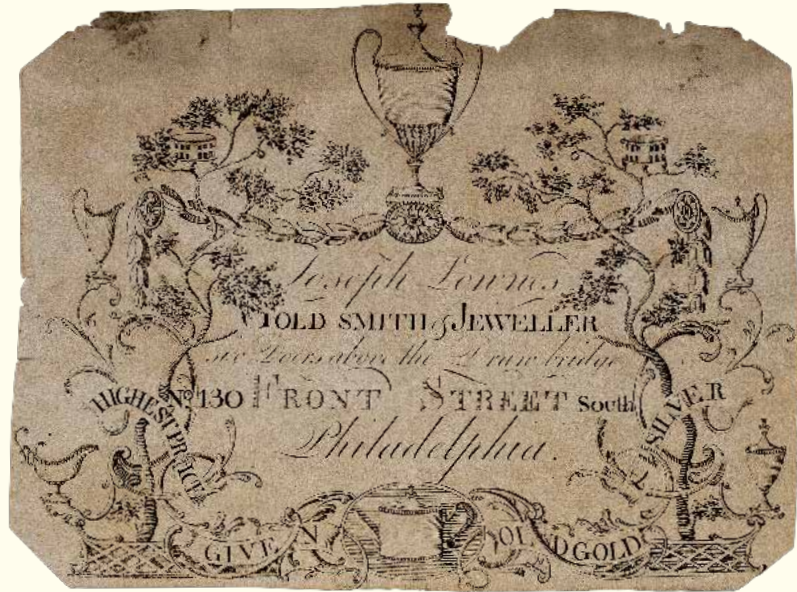 Joseph Lownes
GOLD SMITH & JEWELLER
six Doors above the Draw bridge
No. 130 FRONT STREET South
Philadelphia.
HIGHEST PRICE
GIVEN
OLD GOLD
& SILVER